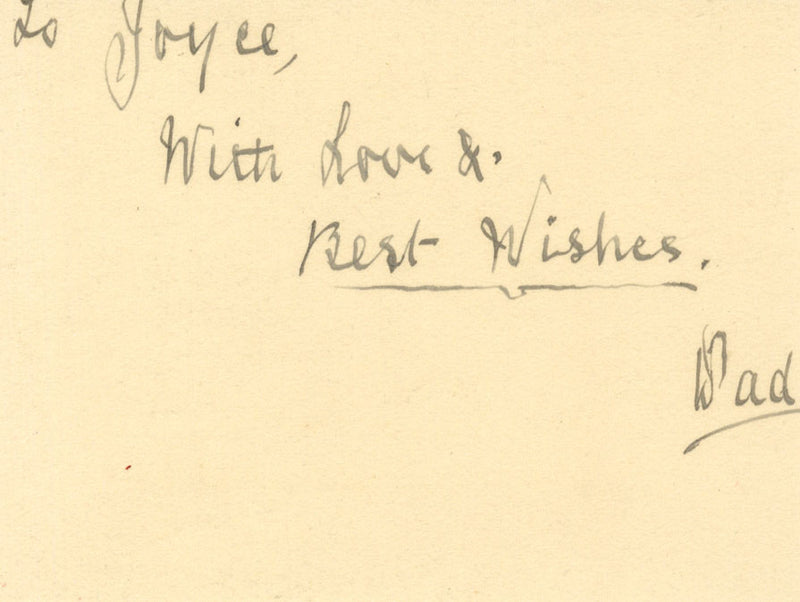 To Joyce,
With Love &.
Best Wishes.
Dad